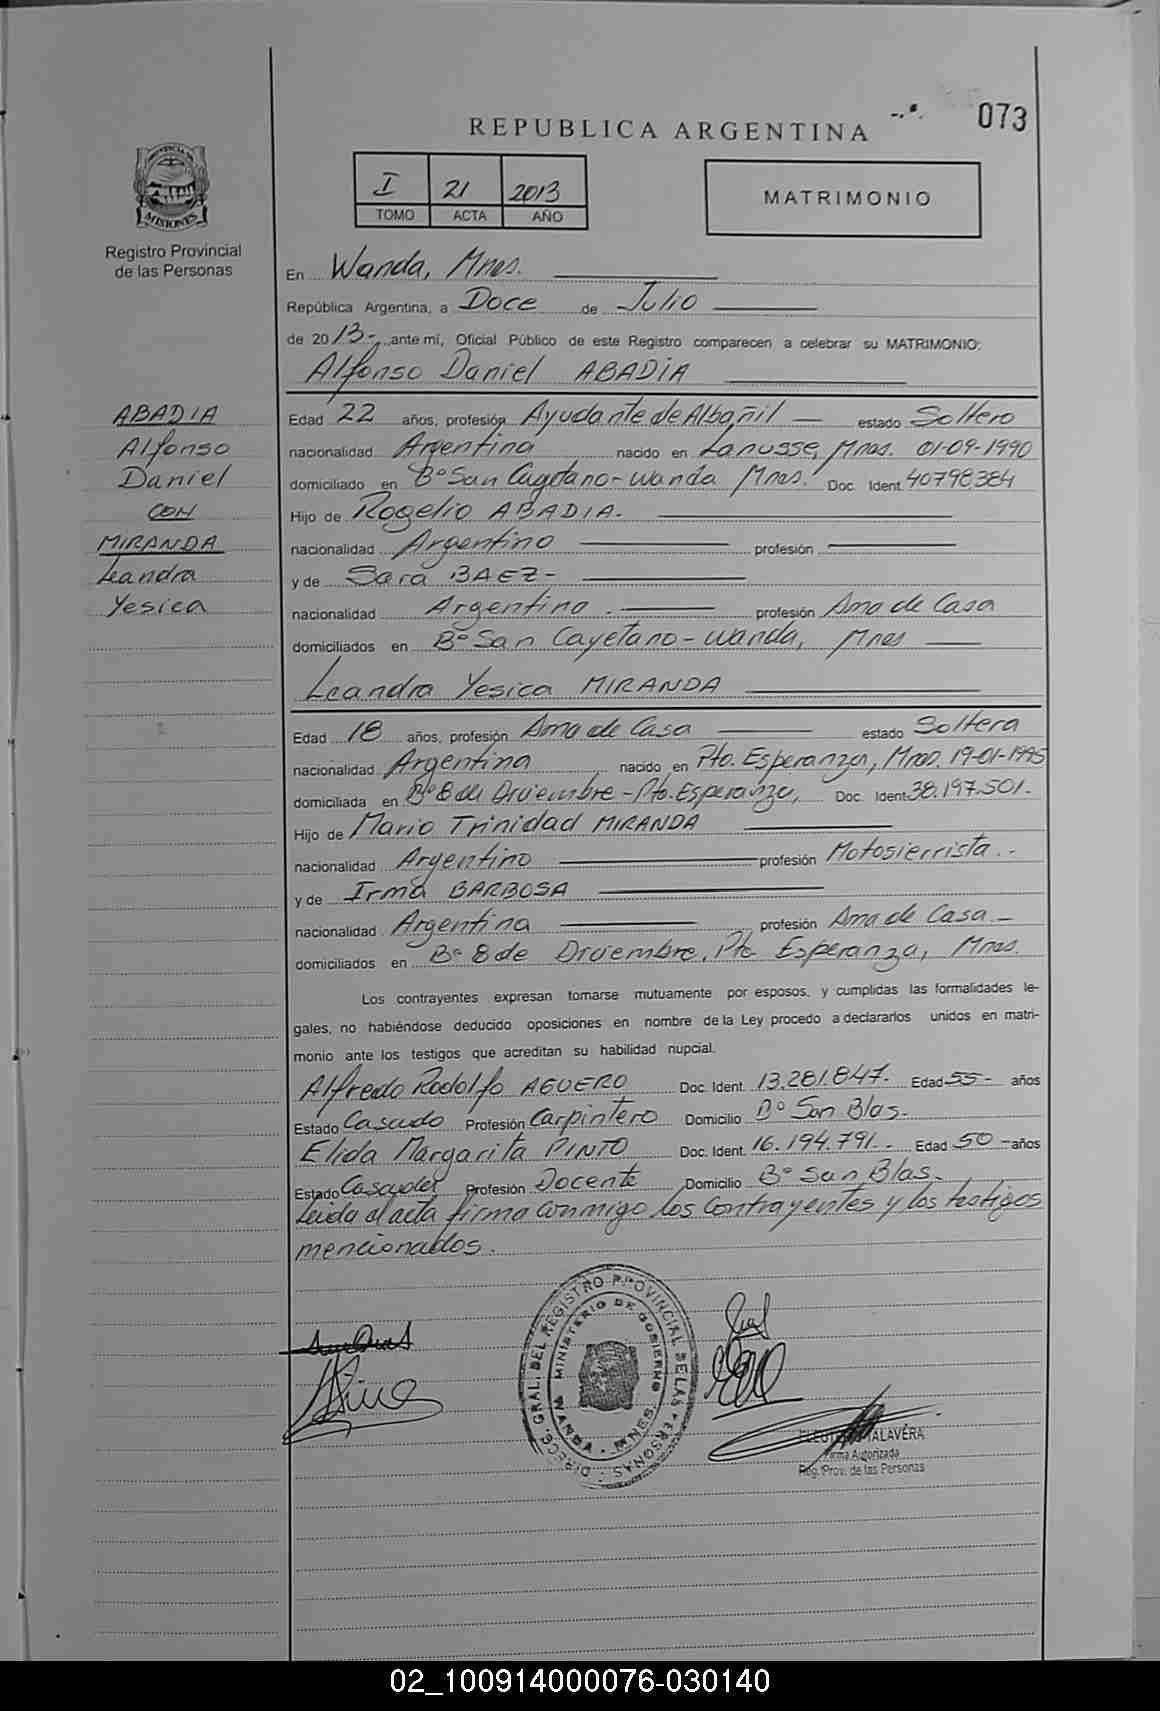 073
REPUBLICA ARGENTINA
PROVINCIA DE
MISIONES
Registro Provincial
de las Personas
I 21 2013
TOMO ACTA AÑO
MATRIMONIO
En Wanda, Mnes.
República Argentina, a Doce de Julio
de 2013-, ante mí, Oficial Público de este Registro comparecen a celebrar su MATRIMONIO:
Alfonso Daniel ABADIA
ABADIA
Alfonso
Daniel
CON
MIRANDA
Leandra
Yesica
Edad 22 años, profesión Ayudante de Albañil — estado Soltero
nacionalidad Argentina nacido en Lanusse, Mnes. 01-09-1990
domiciliado en Bº San Cayetano - Wanda Mnes. Doc. Ident. 40798384
Hijo de Rogelio ABADIA.
nacionalidad Argentino profesión
y de Sara BAEZ -
nacionalidad Argentina. profesión Ama de Casa
domiciliados en Bº San Cayetano - Wanda, Mnes
Leandra Yesica MIRANDA
Edad 18 años, profesión Ama de Casa estado Soltera
nacionalidad Argentina nacido en Pto. Esperanza, Mnes. 19-01-1995
domiciliada en Bº 8 de Diciembre - Pto. Esperanza, Doc. Ident. 38.197.501.
Hijo de Mario Trinidad MIRANDA
nacionalidad Argentino profesión Motosierrista.-
y de Irma BARBOSA
nacionalidad Argentina profesión Ama de Casa -
domiciliados en Bº 8 de Diciembre, Pto Esperanza, Mnes.
Los contrayentes expresan tomarse mutuamente por esposos, y cumplidas las formalidades le-
gales, no habiéndose deducido oposiciones en nombre de la Ley procedo a declararlos unidos en matri-
monio ante los testigos que acreditan su habilidad nupcial.
Alfredo Rodolfo AGUERO Doc. Ident. 13.281.847. Edad 55- años
Estado Casado Profesión Carpintero Domicilio Bº San Blas.
Elida Margarita PINTO Doc. Ident. 16.194.791.- Edad 50- años
Estado Profesión Docente Domicilio Bº San Blas.
Leida el acta firma conmigo los contrayentes y los testigos
mencionados.
DIRECC. GRAL. DEL REGISTRO PROVINCIAL DE LAS PERSONAS
MINISTERIO DE GOBIERNO
WANDA - MNES.
MALAVERA
Firma Autorizada
Reg. Prov. de las Personas
02_100914000076-030140